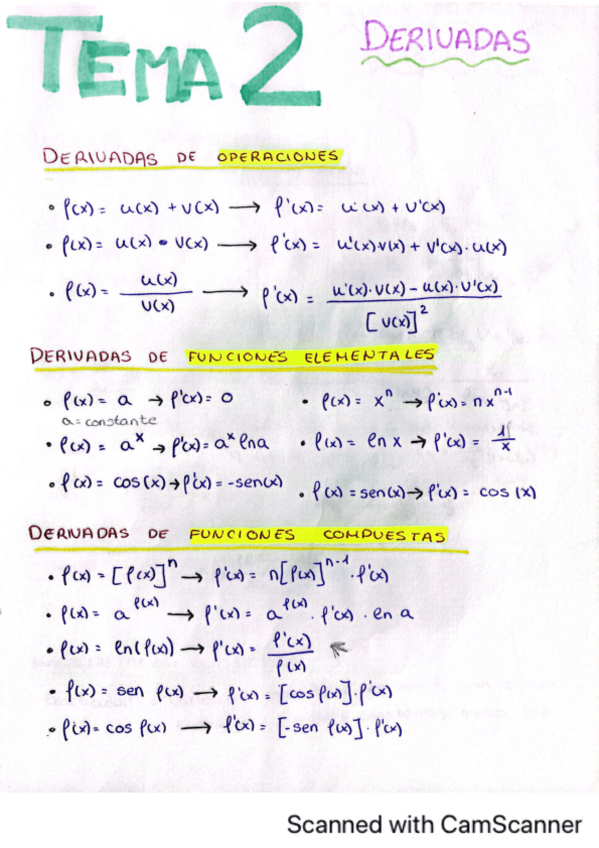 TEMA 2
DERIVADAS
DERIVADAS DE OPERACIONES
• f(x) = u(x) + v(x) → f'(x) = u'(x) + v'(x)
• f(x) = u(x) • v(x) → f'(x) = u'(x)·v(x) + v'(x)·u(x)
• f(x) = u(x) / v(x) → f'(x) = u'(x)·v(x) - u(x)·v'(x) / [v(x)]²
DERIVADAS DE FUNCIONES ELEMENTALES
• f(x) = a → f'(x) = 0 • f(x) = xⁿ → f'(x) = nxⁿ⁻¹
a = constante
• f(x) = aˣ → f'(x) = aˣ ln a • f(x) = ln x → f'(x) = 1/x
• f(x) = cos(x) → f'(x) = -sen(x) • f(x) = sen(x) → f'(x) = cos(x)
DERIVADAS DE FUNCIONES COMPUESTAS
• f(x) = [f(x)]ⁿ → f'(x) = n[f(x)]ⁿ⁻¹ · f'(x)
• f(x) = a^f(x) → f'(x) = a^f(x) · f'(x) · ln a
• f(x) = ln(f(x)) → f'(x) = f'(x) / f(x)
• f(x) = sen f(x) → f'(x) = [cos f(x)]·f'(x)
• f(x) = cos f(x) → f'(x) = [-sen f(x)]·f'(x)
Scanned with CamScanner